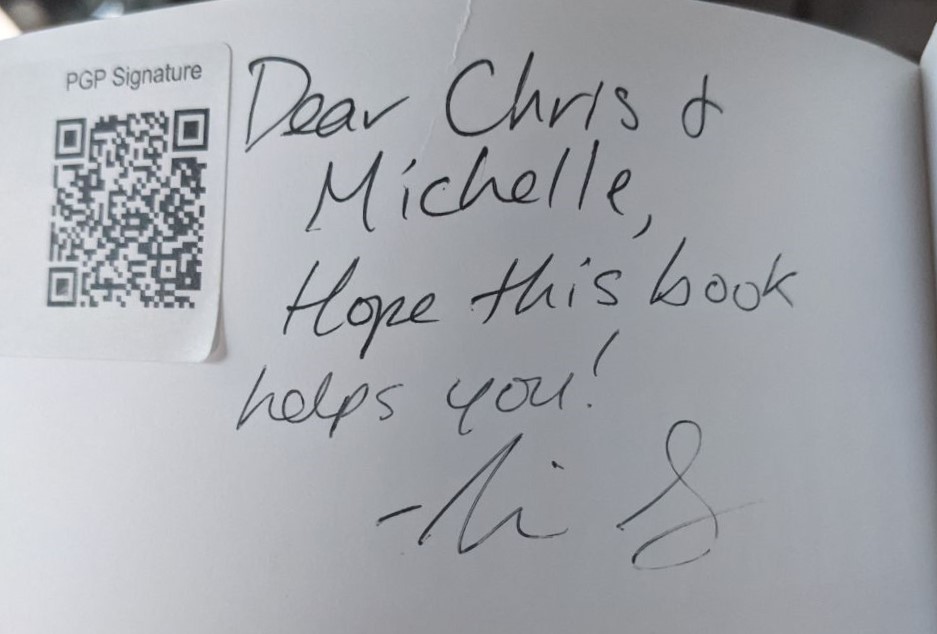 PGP Signature
Dear Chris &
Michelle,
Hope this book
helps you!